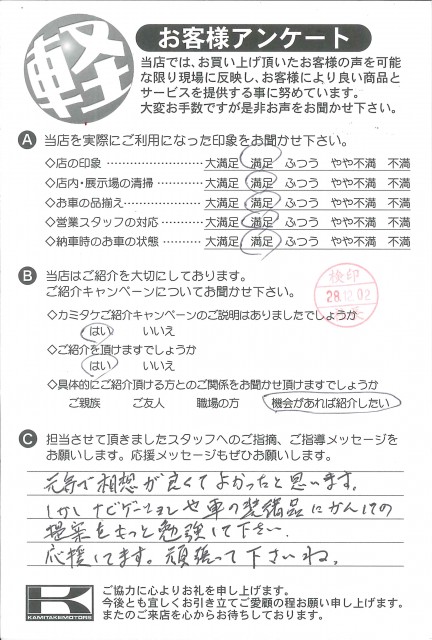 軽
お客様アンケート
当店では、お買い上げ頂いたお客様の声を可能
な限り現場に反映し、お客様により良い商品と
サービスを提供する事に努めています。
大変お手数ですが是非お声をお聞かせ下さい。
A 当店を実際にご利用になった印象をお聞かせ下さい。
◇店の印象 大満足 満足 ふつう やや不満 不満
◇店内・展示場の清掃 大満足 満足 ふつう やや不満 不満
◇お車の品揃え 大満足 満足 ふつう やや不満 不満
◇営業スタッフの対応 大満足 満足 ふつう やや不満 不満
◇納車時のお車の状態 大満足 満足 ふつう やや不満 不満
B 当店はご紹介を大切にしております。
ご紹介キャンペーンについてお聞かせ下さい。
検印
28.12.02
◇カミタケご紹介キャンペーンのご説明はありましたでしょうか
はい いいえ
◇ご紹介を頂けますでしょうか
はい いいえ
◇具体的にご紹介頂ける方とのご関係をお聞かせ頂けますでしょうか
ご親族 ご友人 職場の方 機会があれば紹介したい
C 担当させて頂きましたスタッフへのご指摘、ご指導メッセージを
お願いします。応援メッセージもぜひお願いします。
元気で相想が良くてよかったと思います。
しかしナビゲーションや車の装備品にかんしての
提案をもっと勉強して下さい。
応援してます。頑張って下さいね。
K
KAMITAKEMOTORS
ご協力に心よりお礼を申し上げます。
今後とも宜しくお引き立てご愛顧の程お願い申し上げます。
またのご来店を心からお待ちしております。